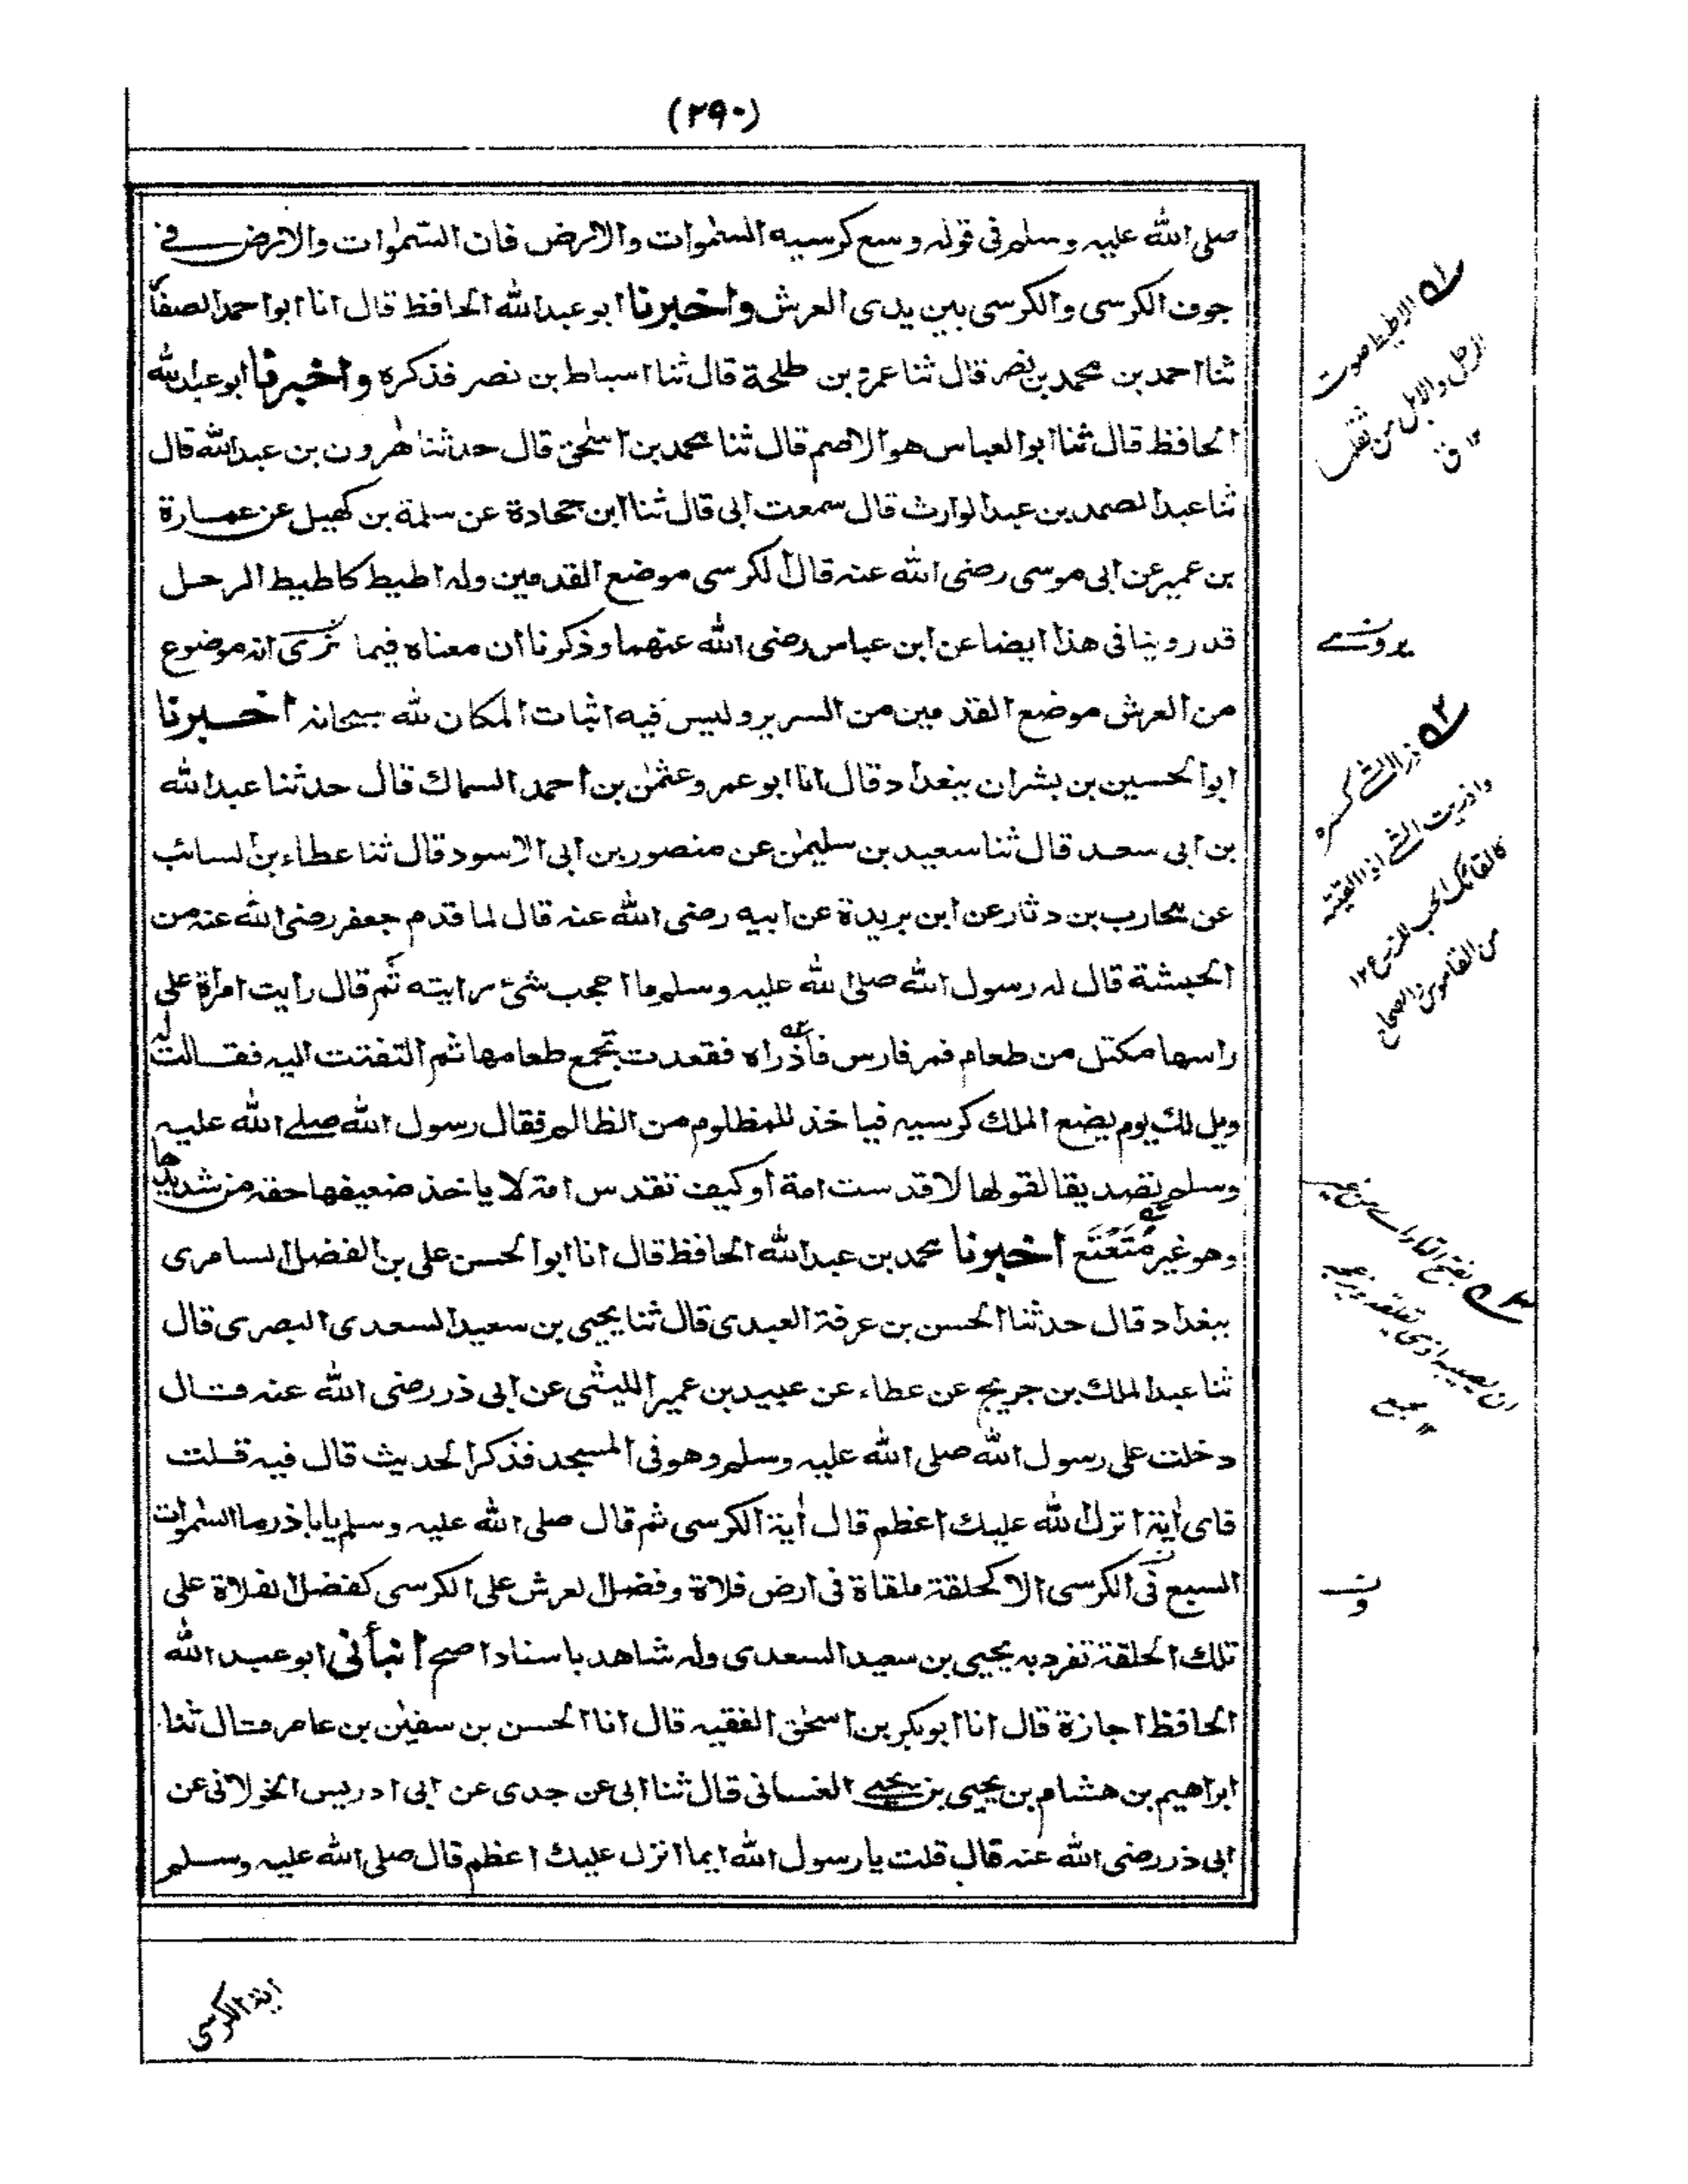 (٢٩٠)
صلى الله عليه وسلم فى قوله وسع كرسيه السمٰوات والارض فان السمٰوات والارض فے
جوف الكرسى والكرسى بين يدى العرش واخبرنا ابو عبد الله الحافظ قال انا ابو احمد الصفار
ثنا احمد بن محمد بن نصر قال ثنا عمرو بن طلحة قال ثنا اسباط بن نصر فذكره واخبرنا ابو عبد الله
الحافظ قال ثنا ابو العباس هو الاصم قال ثنا محمد بن اسحٰق قال حدثنا هٰرون بن عبد الله قال
ثنا عبد الصمد بن عبد الوارث قال سمعت ابى قال ثنا ابن جحادة عن سلمة بن كهيل عن عمارة
بن عمير عن ابى موسى رضى الله عنه قال الكرسى موضع القدمين وله اطيط كاطيط الرحل
قد روينا فى هذا ايضا عن ابن عباس رضى الله عنهما وذكرنا ان معناه فيما نرى انه موضوع
من العرش موضع القدمين من السرير وليس فيه اثبات المكان لله سبحانه اخبرنا
ابو الحسين بن بشران ببغداد قال انا ابو عمرو عثمٰن بن احمد السماك قال حدثنا عبد الله
بن ابى سعد قال ثنا سعيد بن سليمٰن عن منصور بن ابى الاسود قال ثنا عطاء بن السائب
عن محارب بن دثار عن ابن بريدة عن ابيه رضى الله عنه قال لما قدم جعفر رضى الله عنه من
الحبشة قال له رسول الله صلى الله عليه وسلم ما اعجب شئ رايته ثَم قال رأيت امرأة على
راسها مكتل من طعام فمر فارس فأذراه فقعدت تجمع طعامها ثم التفتت اليه فقالت له
ويل لك يوم يضع الملك كرسيه فياخذ للمظلوم من الظالم فقال رسول الله صلے الله عليه
وسلم تصديقا لقولها لا قدست امة أو كيف تقدس امة لا ياخذ ضعيفها حقه من شديدها
وهو غير مُتَعْتَع اخبرنا محمد بن عبد الله الحافظ قال انا ابو الحسن على بن الفضل السامرى
ببغداد قال حدثنا الحسن بن عرفة العبدى قال ثنا يحيى بن سعيد السعدى البصرى قال
ثنا عبد الملك بن جريج عن عطاء عن عبيد بن عمير الليثى عن ابى ذر رضى الله عنه قال
دخلت على رسول الله صلى الله عليه وسلم وهو فى المسجد فذكر الحديث قال فيه قلت
فاى اٰية انزل الله عليك اعظم قال اٰية الكرسى ثم قال صلى الله عليه وسلم يا باذر ما السمٰوات
السبع فى الكرسى الا كحلقة ملقاة فى ارض فلاة وفضل العرش على الكرسى كفضل الفلاة على
تلك الحلقة تفرد به يحيى بن سعيد السعدى وله شاهد باسناد اصح انبأنى ابو عبد الله
الحافظ اجازة قال انا ابو بكر بن اسحٰق الفقيه قال انا الحسن بن سفيٰن بن عامر قال ثنا
ابراهيم بن هشام بن يحيى بن يحيے الغسانى قال ثنا ابى عن جدى عن ابى ادريس الخولانى عن
ابى ذر رضى الله عنه قال قلت يا رسول الله ايما انزل عليك اعظم قال صلى الله عليه وسلم
اٰية الكرسى
الاطيط صوت
الرحل والابل من ثقل
١٢ ق
ذرا الشے كسره
واذريت الشے اذا القيته
كالقائك الحب للزرع ١٢
من القاموس والصحاح